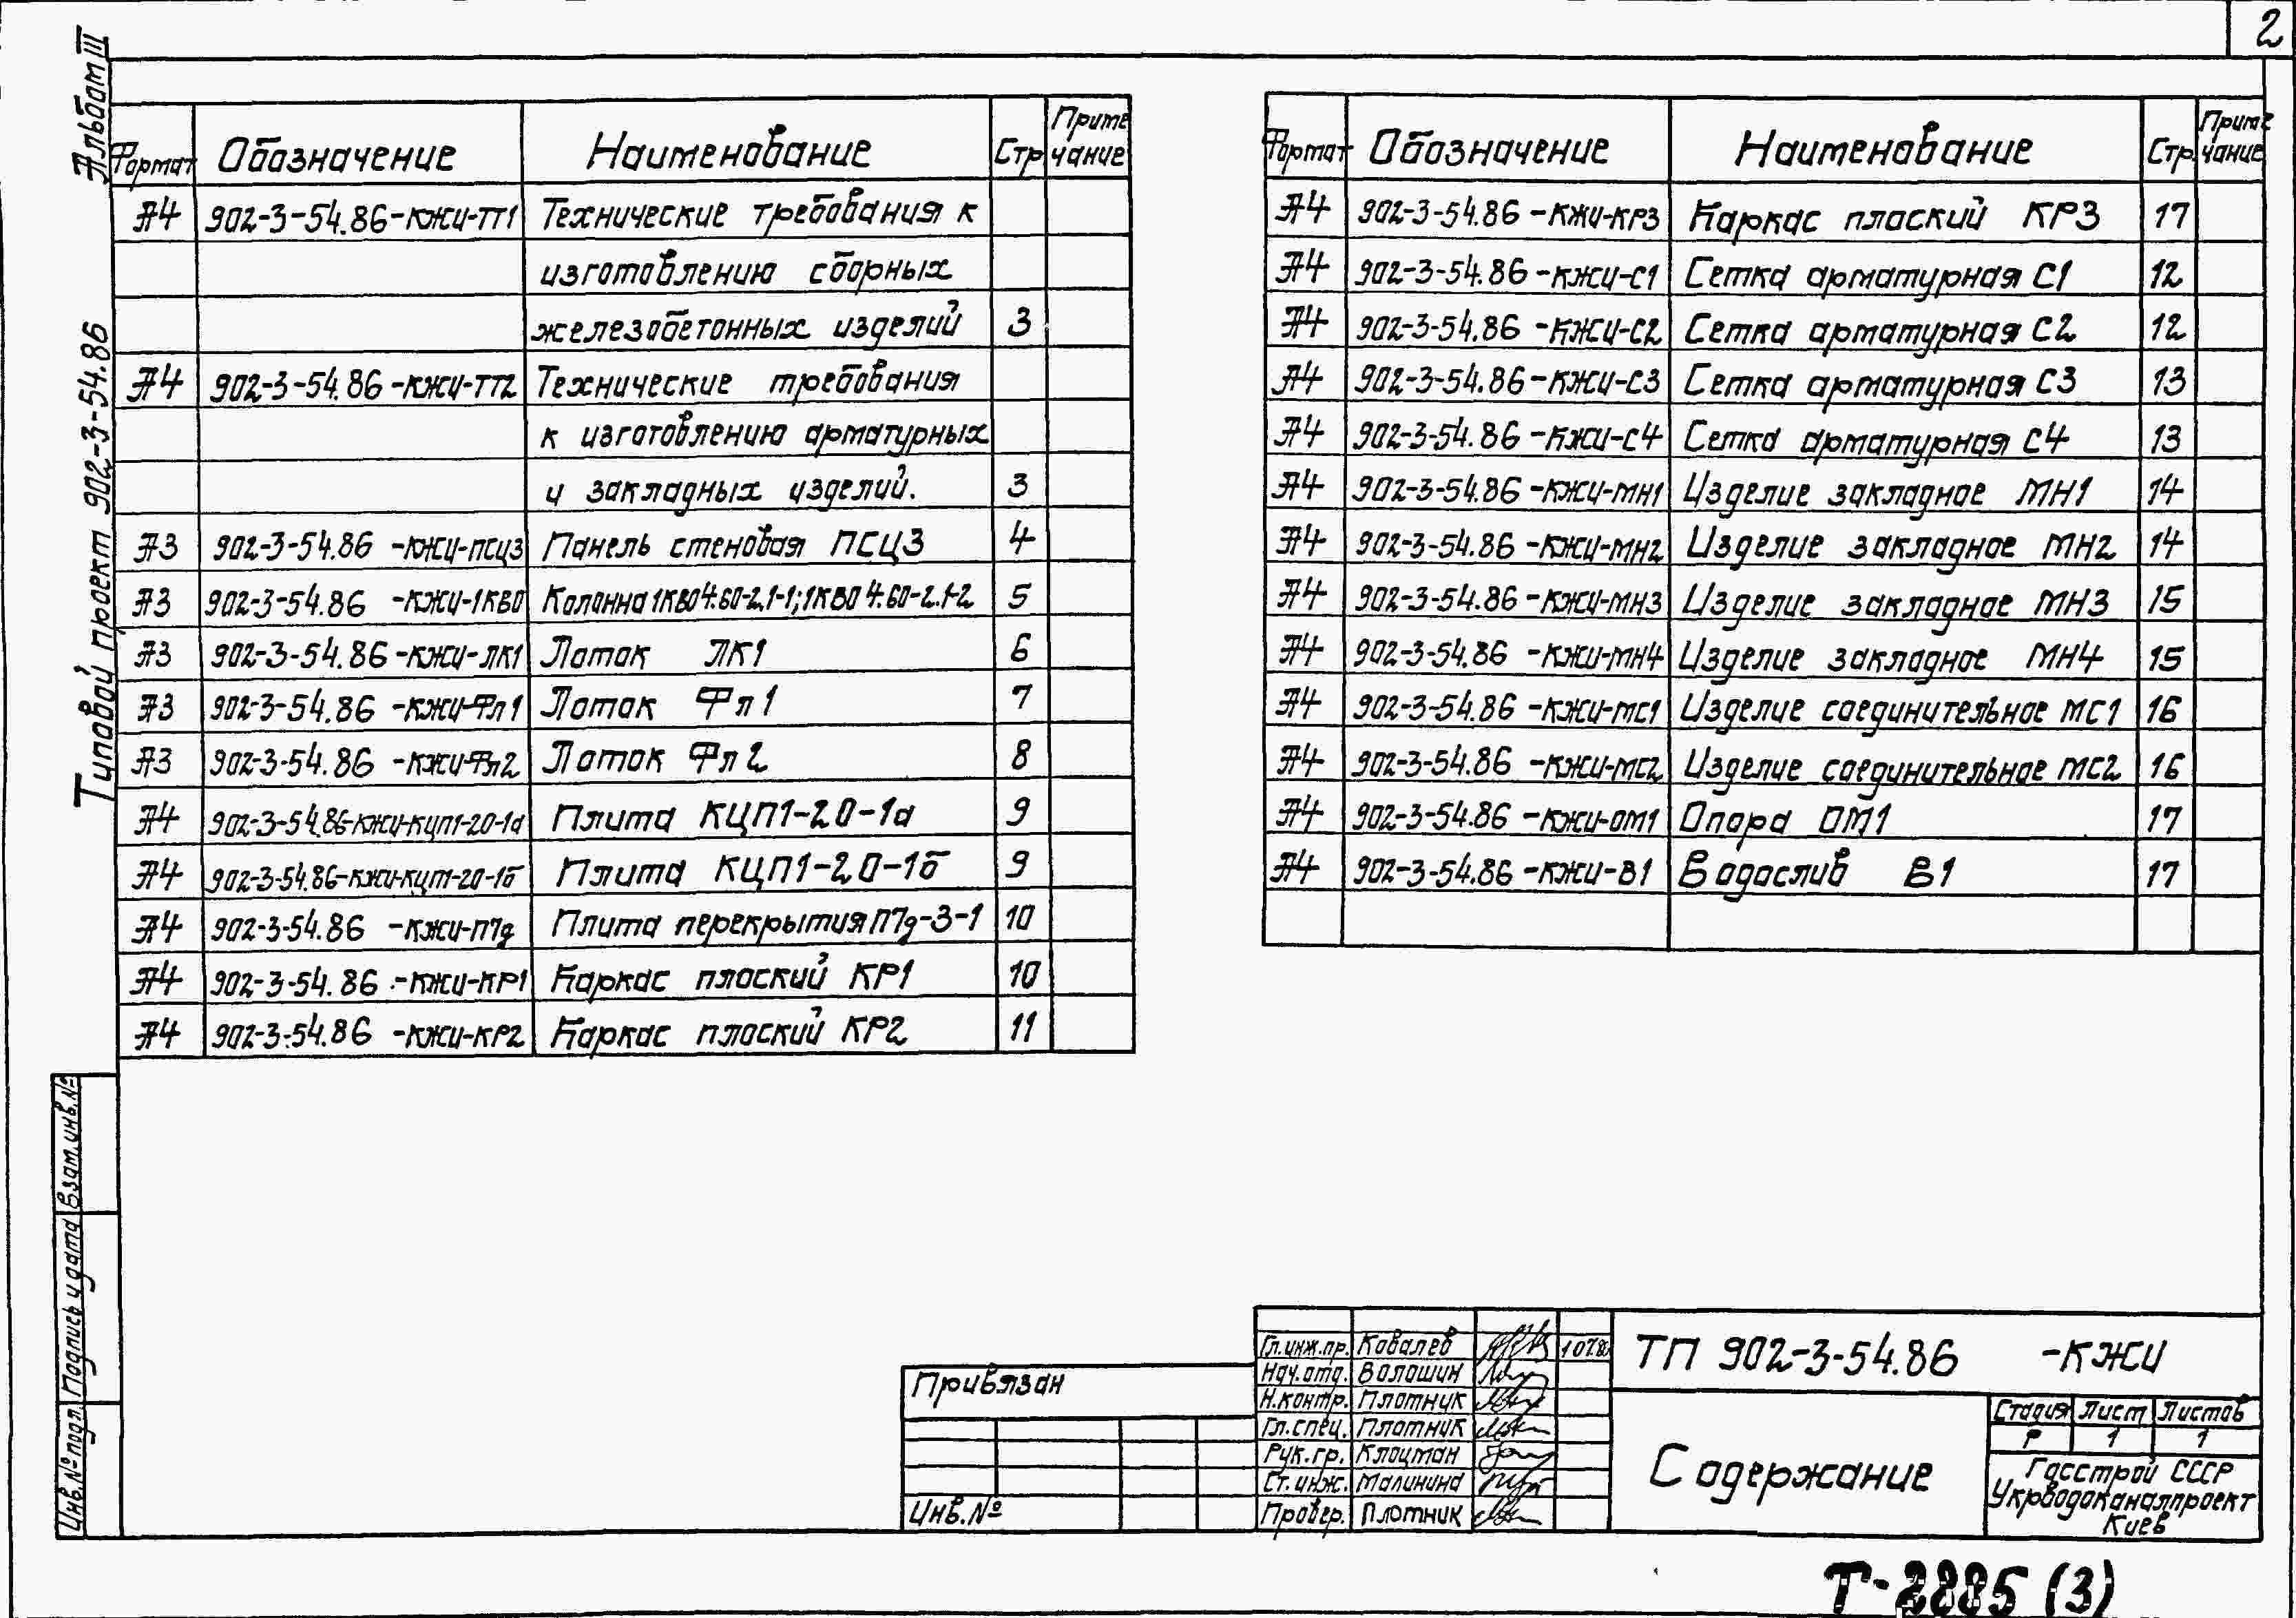 2
Альбом III
Типовой проект 902-3-54.86
Формат Обозначение Наименование Стр Приме чание
А4 902-3-54.86-КЖИ-ТТ1 Технические требования к
изготовлению сборных
железобетонных изделий 3
А4 902-3-54.86-КЖИ-ТТ2 Технические требования
к изготовлению арматурных
и закладных изделий. 3
А3 902-3-54.86 -КЖИ-ПСЦ3 Панель стеновая ПСЦ3 4
А3 902-3-54.86 -КЖИ-1КВ0 Колонна 1КВ0 4.60-2.1-1; 1КВ0 4.60-2.1-2 5
А3 902-3-54.86-КЖИ-ЛК1 Лоток ЛК1 6
А3 902-3-54.86 -КЖИ-Фл1 Лоток Фл1 7
А3 902-3-54.86 -КЖИ-Фл2 Лоток Фл2 8
А4 902-3-54.86-КЖИ-КЦП1-20-1а Плита КЦП1-20-1а 9
А4 902-3-54.86-КЖИ-КЦП1-20-1б Плита КЦП1-20-1б 9
А4 902-3-54.86 -КЖИ-П7д Плита перекрытия П7д-3-1 10
А4 902-3-54.86 -КЖИ-КР1 Каркас плоский КР1 10
А4 902-3-54.86 -КЖИ-КР2 Каркас плоский КР2 11
Формат Обозначение Наименование Стр. Приме чание
А4 902-3-54.86 -КЖИ-КР3 Каркас плоский КР3 17
А4 902-3-54.86 -КЖИ-С1 Сетка арматурная С1 12
А4 902-3-54.86 -КЖИ-С2 Сетка арматурная С2 12
А4 902-3-54.86 -КЖИ-С3 Сетка арматурная С3 13
А4 902-3-54.86 -КЖИ-С4 Сетка арматурная С4 13
А4 902-3-54.86 -КЖИ-МН1 Изделие закладное МН1 14
А4 902-3-54.86 -КЖИ-МН2 Изделие закладное МН2 14
А4 902-3-54.86 -КЖИ-МН3 Изделие закладное МН3 15
А4 902-3-54.86 -КЖИ-МН4 Изделие закладное МН4 15
А4 902-3-54.86 -КЖИ-МС1 Изделие соединительное МС1 16
А4 902-3-54.86 -КЖИ-МС2 Изделие соединительное МС2 16
А4 902-3-54.86 -КЖИ-ОМ1 Опора ОМ1 17
А4 902-3-54.86 -КЖИ-В1 Водослив В1 17
Взам.инв.№
Подпись и дата
Инв.№ подл.
Привязан
Инв.№
Гл.инж.пр. Ковалев
Нач.отд. Волошин
Н.контр. Плотник
Гл.спец. Плотник
Рук.гр. Клоцман
Ст.инж. Малинина
Провер. Плотник
ТП 902-3-54.86 -КЖИ
Содержание
Стадия Лист Листов
Р 1 1
Госстрой СССР
Укрводоканалпроект
Киев
Т-2885 (3)